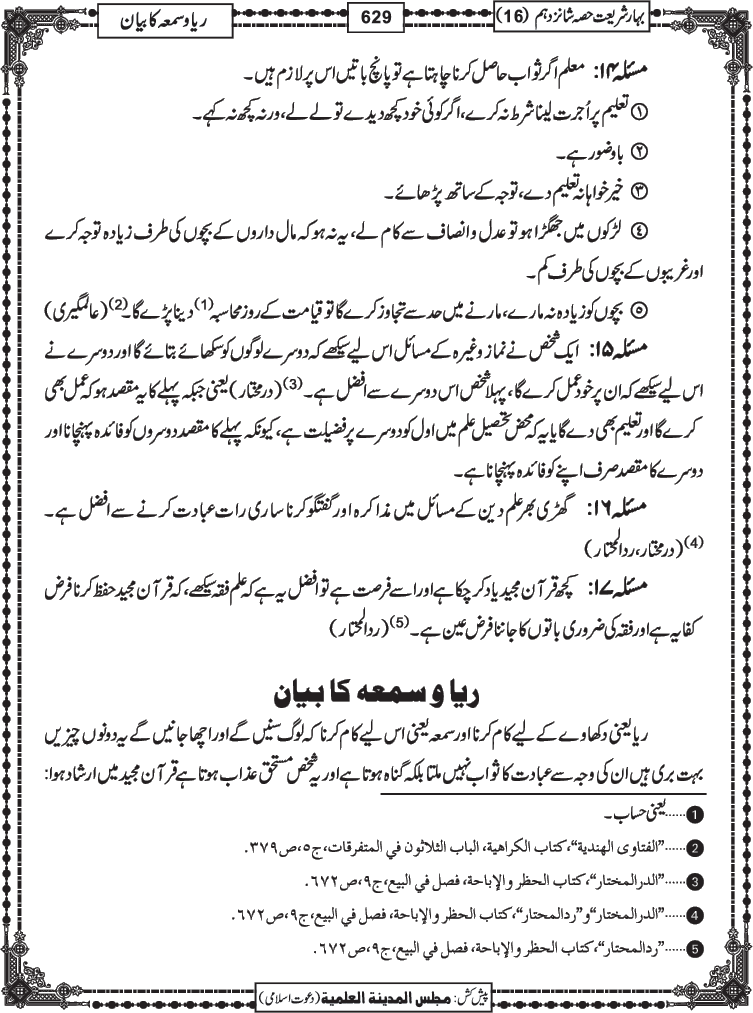 بہار شریعت حصہ شانزدہم (16)
629
ریا و سمعہ کا بیان
مسئلہ ۱۴: معلم اگر ثواب حاصل کرنا چاہتا ہے تو پانچ باتیں اس پر لازم ہیں۔
① تعلیم پر اُجرت لینا شرط نہ کرے، اگر کوئی خود کچھ دیدے تو لے لے، ورنہ کچھ نہ کہے۔
② باوضو رہے۔
③ خیر خواہانہ تعلیم دے، توجہ کے ساتھ پڑھائے۔
④ لڑکوں میں جھگڑا ہو تو عدل و انصاف سے کام لے، یہ نہ ہو کہ مال داروں کے بچوں کی طرف زیادہ توجہ کرے
اور غریبوں کے بچوں کی طرف کم۔
⑤ بچوں کو زیادہ نہ مارے، مارنے میں حد سے تجاوز کرے گا تو قیامت کے روز محاسبہ (1) دینا پڑے گا۔ (2) (عالمگیری)
مسئلہ ۱۵: ایک شخص نے نماز وغیرہ کے مسائل اس لیے سیکھے کہ دوسرے لوگوں کو سکھائے بتائے گا اور دوسرے نے
اس لیے سیکھے کہ ان پر خود عمل کرے گا، پہلا شخص اس دوسرے سے افضل ہے۔ (3) (درمختار) یعنی جبکہ پہلے کا یہ مقصد ہو کہ عمل بھی
کرے گا اور تعلیم بھی دے گا یا یہ کہ محض تحصیل علم میں اول کو دوسرے پر فضیلت ہے، کیونکہ پہلے کا مقصد دوسروں کو فائدہ پہنچانا اور
دوسرے کا مقصد صرف اپنے کو فائدہ پہنچانا ہے۔
مسئلہ ۱۶: گھڑی بھر علم دین کے مسائل میں مذاکرہ اور گفتگو کرنا ساری رات عبادت کرنے سے افضل ہے۔
(4) (درمختار، ردالمحتار)
مسئلہ ۱۷: کچھ قرآن مجید یاد کر چکا ہے اور اسے فرصت ہے تو افضل یہ ہے کہ علم فقہ سیکھے، کہ قرآن مجید حفظ کرنا فرض
کفایہ ہے اور فقہ کی ضروری باتوں کا جاننا فرض عین ہے۔ (5) (ردالمحتار)
ریا و سمعہ کا بیان
ریا یعنی دکھاوے کے لیے کام کرنا اور سمعہ یعنی اس لیے کام کرنا کہ لوگ سنیں گے اور اچھا جانیں گے یہ دونوں چیزیں
بہت بری ہیں ان کی وجہ سے عبادت کا ثواب نہیں ملتا بلکہ گناہ ہوتا ہے اور یہ شخص مستحق عذاب ہوتا ہے قرآن مجید میں ارشاد ہوا:
1 ......یعنی حساب۔
2 ......"الفتاوى الهندية"، كتاب الكراهية، الباب الثلاثون في المتفرقات، ج٥، ص٣٧٩.
3 ......"الدرالمختار"، كتاب الحظر والإباحة، فصل في البيع، ج٩، ص٦٧٢.
4 ......"الدرالمختار" و"ردالمحتار"، كتاب الحظر والإباحة، فصل في البيع، ج٩، ص٦٧٢.
5 ......"ردالمحتار"، كتاب الحظر والإباحة، فصل في البيع، ج٩، ص٦٧٢.
پیش کش: مجلس المدینة العلمیة (دعوت اسلامی)